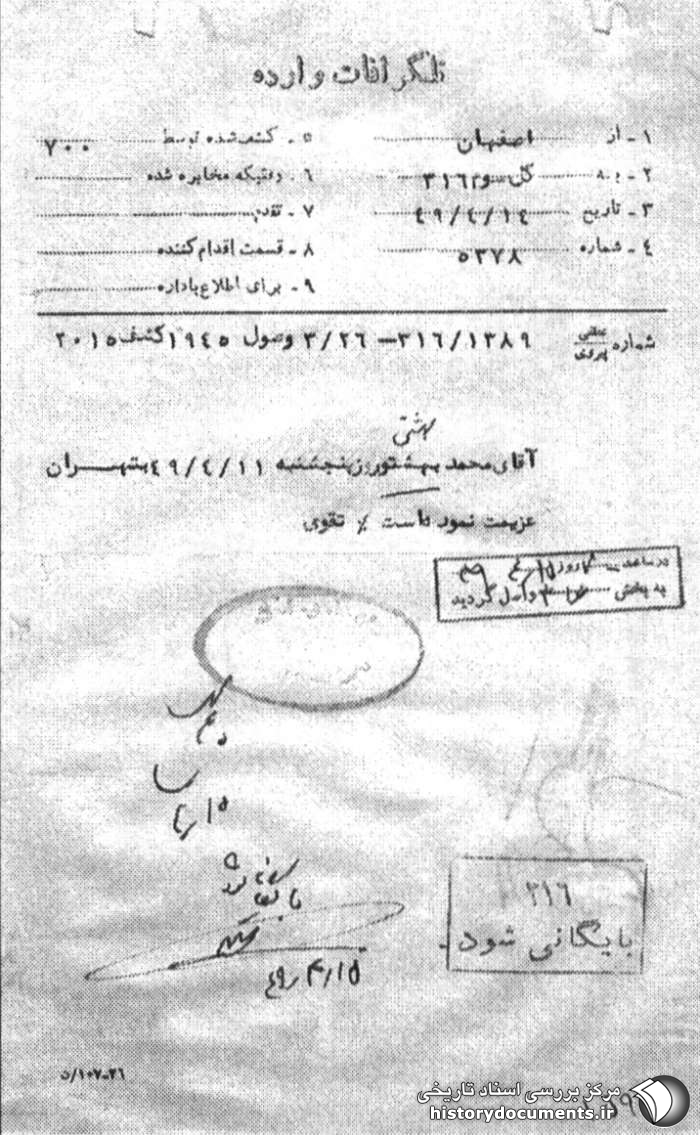 تلگرافات وارده
۱ - از اصفهان
۲ - به کل سوم ۳۱۶
۳ - تاریخ ۴۹/۴/۱۴
۴ - شماره ۵۳۷۸
۵ - کشف شده توسط ۷۰۰
۶ - وقتیکه مخابره شده
۷ - تقدم
۸ - قسمت اقدام کننده
۹ - برای اطلاع باداره
شماره عطفی پیروی ۳۱۶/۱۳۸۹ - ۳/۲۶ وصول ۱۹۴۵ کشف ۲۰۱۵
بهشتی
آقای محمد بهشتو روز پنجشنبه ۴۹/۴/۱۱ بتهران
عزیمت نموده است ٪ تقوی
در ساعت روز ۱۵/۴/۴۹
به بخش ۳۱۶ واصل گردید
۱۵/۴
بایگانی شود
۱۵/۴/۴۹
۳۱۶
بایگانی شود.
۲۶-۱۰۷/ن
مرکز بررسی اسناد تاریخی
historydocuments.ir